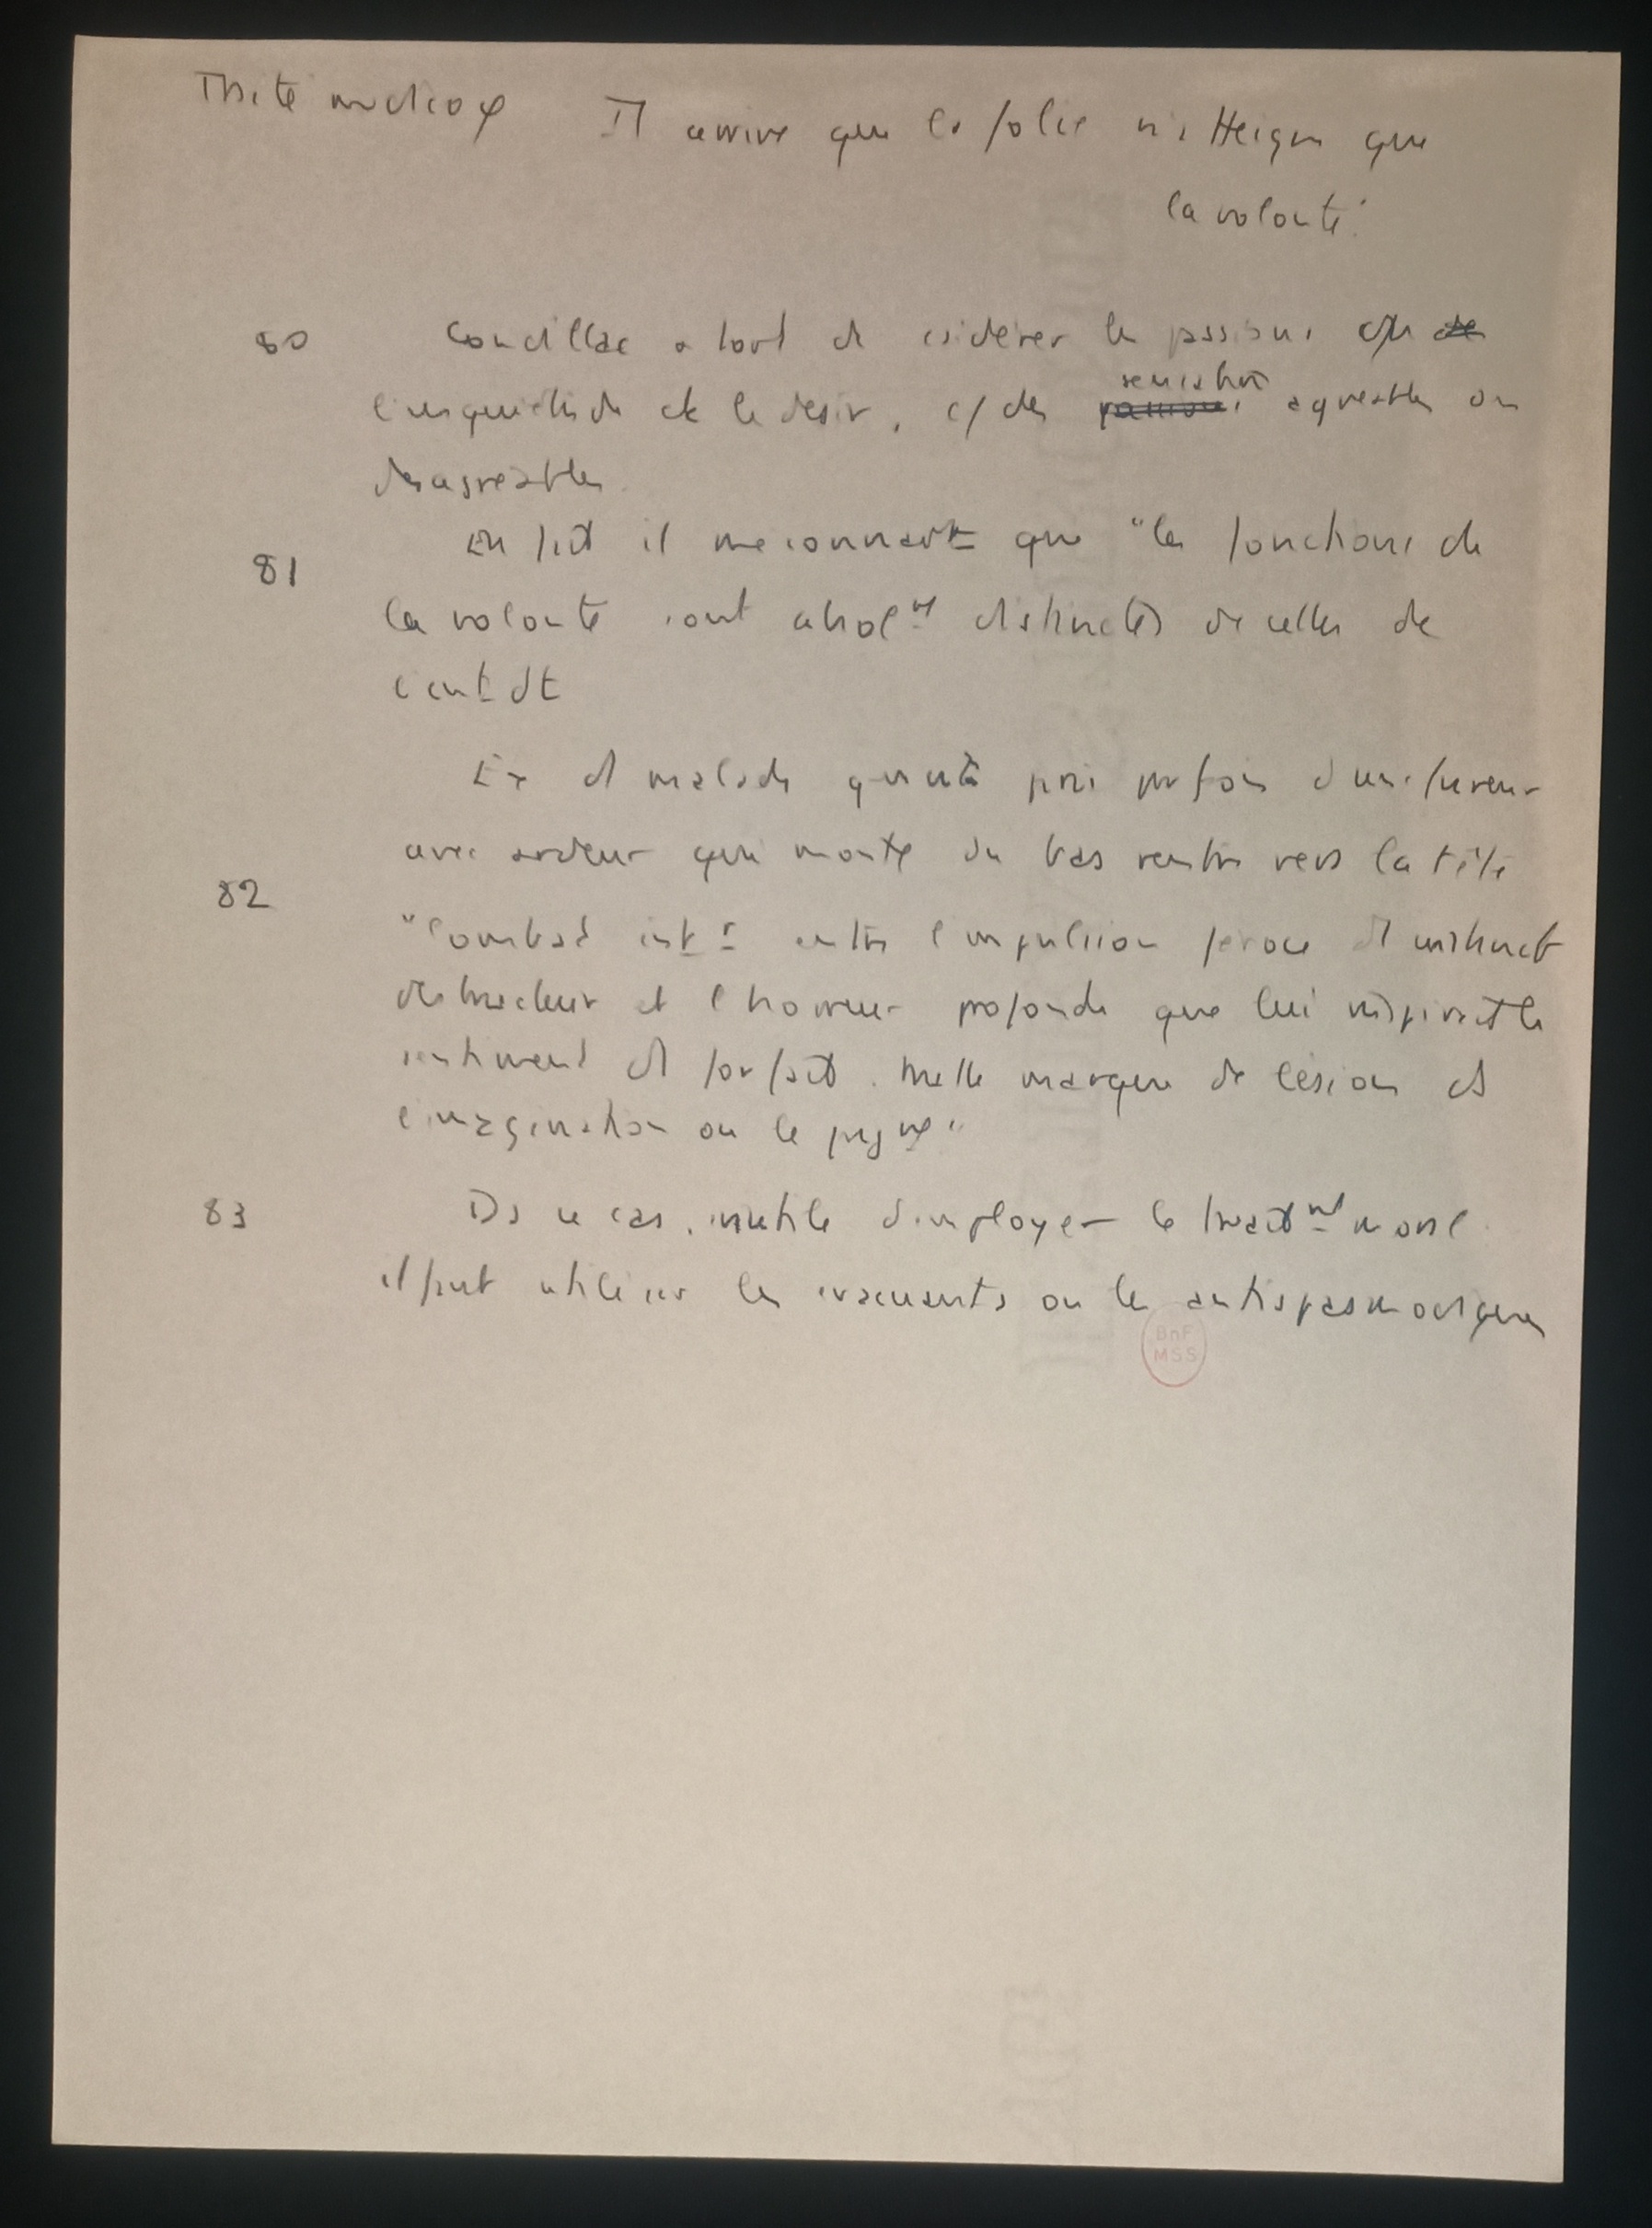 Traité medicoφ Il arrive que la folie n'atteigne que
la volonté.
80 Condillac a tort de csidérer les passions cm de
l'inquiétude et le désir, c/ des passions sensations agréables ou
désagréables.
81 En fait il meconnait que "les fonctions de
la volonté sont absolᵗ distinctes de celles de
l'entdt
Ex d'1 malade qui était pris parfois d'une fureur
avec ardeur qui monte du bas ventre vers la tête
82 "Combat intʳ entre l'impulsion féroce d'1 instinct
destructeur et l'horreur profonde que lui inspirait le
sentiment d'1 forfait. Nulle marque de lésion ds
l'imagination ou le jugᵗ"
83 Ds ce cas, inutile d'employer le traitᵗ moral
il faut utiliser les évacuants ou les antispasmodiques
BnF
MSS